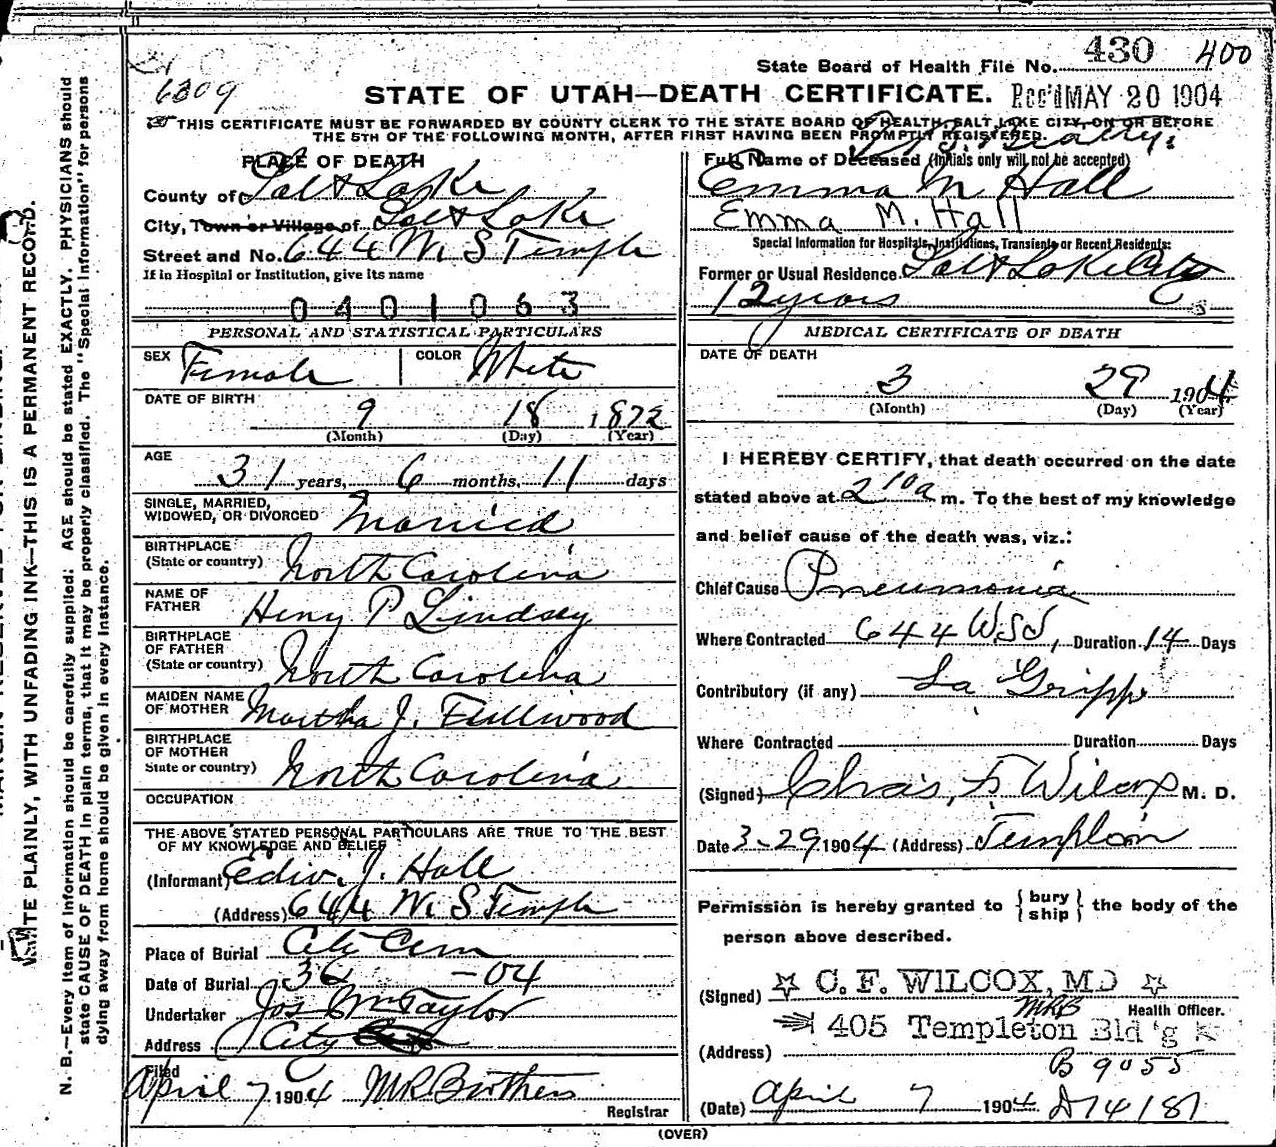 State Board of Health File No. 430 400
6309
STATE OF UTAH—DEATH CERTIFICATE. Rec'd MAY 20 1904
THIS CERTIFICATE MUST BE FORWARDED BY COUNTY CLERK TO THE STATE BOARD OF HEALTH, SALT LAKE CITY, ON OR BEFORE
THE 5TH OF THE FOLLOWING MONTH, AFTER FIRST HAVING BEEN PROMPTLY REGISTERED.
PLACE OF DEATH
County of Salt Lake
City, Town or Village of Salt Lake
Street and No. 644 W. S Temple
If in Hospital or Institution, give its name
0401063
Full Name of Deceased (Initials only will not be accepted)
Emma M Hall
Emma M. Hall
Special Information for Hospitals, Institutions, Transients or Recent Residents:
Former or Usual Residence Salt Lake City
12 years
PERSONAL AND STATISTICAL PARTICULARS
SEX Female COLOR White
DATE OF BIRTH
9 18 1872
(Month) (Day) (Year)
AGE
31 years, 6 months, 11 days
SINGLE, MARRIED,
WIDOWED, OR DIVORCED Married
BIRTHPLACE
(State or country) North Carolina
NAME OF
FATHER Henry P Lindsey
BIRTHPLACE
OF FATHER
(State or country) North Carolina
MAIDEN NAME
OF MOTHER Martha J. Fullwood
BIRTHPLACE
OF MOTHER
State or country) North Carolina
OCCUPATION
THE ABOVE STATED PERSONAL PARTICULARS ARE TRUE TO THE BEST
OF MY KNOWLEDGE AND BELIEF
(Informant) Edw. J. Hall
(Address) 644 W. S Temple
Place of Burial City Cem
Date of Burial 3 -04
Undertaker Jos Wm Taylor
Address City
Filed
April 7 1904 M R Brothers
Registrar
MEDICAL CERTIFICATE OF DEATH
DATE OF DEATH
3 29 1904
(Month) (Day) (Year)
I HEREBY CERTIFY, that death occurred on the date
stated above at 2 10 a m. To the best of my knowledge
and belief cause of the death was, viz.:
Chief Cause Pneumonia
Where Contracted 644 W S T, Duration 14 Days
Contributory (if any) La Grippe
Where Contracted Duration Days
(Signed) Chas. F. Wilcox M. D.
Date 3-29 1904 (Address) Templeton
Permission is hereby granted to { bury ship } the body of the
person above described.
(Signed) C. F. WILCOX, MD
MRB Health Officer.
(Address) 405 Templeton Bld'g
B 9055
(Date) April 7 1904 D 74187
(OVER)
WRITE PLAINLY, WITH UNFADING INK—THIS IS A PERMANENT RECORD.
N. B.—Every item of information should be carefully supplied. AGE should be stated EXACTLY. PHYSICIANS should
state CAUSE OF DEATH in plain terms, that it may be properly classified. The "Special Information" for persons
dying away from home should be given in every instance.